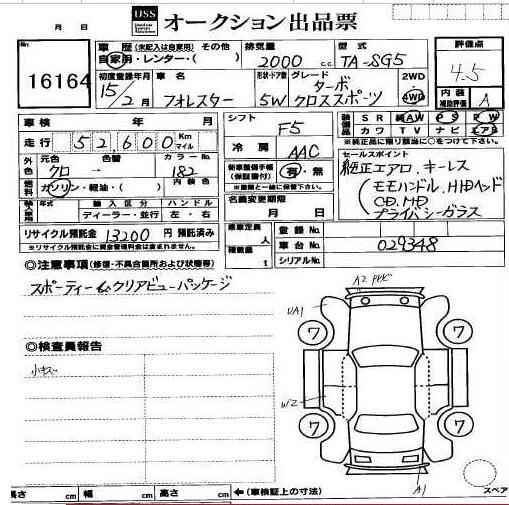 USS オークション出品票
月 日
No. 16164
車歴 (未記入は自家用) その他
自家用・レンター・( )
排気量 2000 c.c.
型式 TA-SG5
評価点 4.5
内装補助評価 A
初度登録年月 15年 2月
車名 フォレスター
形状・ドア数 5W
グレード ターボ クロススポーツ
2WD
4WD
車検 年 月
走行 52600 Km マイル
シフト F5
冷房 AAC
装備品 SR AW PS PW
カワ TV ナビ エアB
※純正品に限り該当に○をつけて下さい
外色 元色 クロ 色替 カラーNo. 182
燃料 ガソリン・軽油・( ) 内装色
新車整備手帳 (保証書付) 有・無
※書類と一緒に保管して下さい。
セールスポイント
純正エアロ、キーレス
モモハンドル、HIDヘッド
CD、MD
プライバシーガラス
輸入車 年式 輸入区分 ハンドル
ディーラー・並行 左・右
名義変更期限
月 日
リサイクル預託金 13200 円 預託済み
※リサイクル預託金に資金管理料金は含まれません。
乗車定員 人
積載量 t
登録No.
車台No. 029348
シリアルNo.
◎注意事項 (修復・不具合箇所および状態等)
スポーティー&クリアビューパッケージ
◎検査員報告
小キズ
UA1
W2
A1
7
7
7
7
長さ cm 幅 cm 高さ cm ←(車検証上の寸法)
スペア